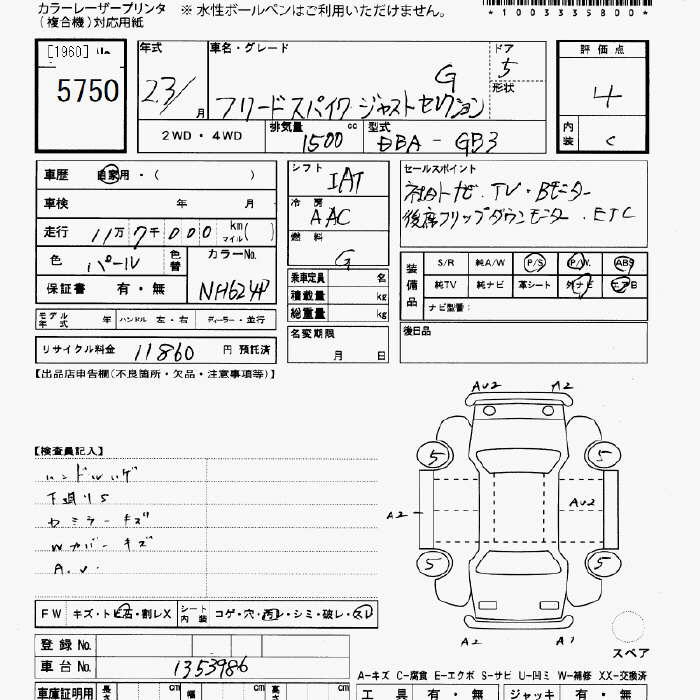 カラーレーザープリンタ
(複合機)対応用紙
※ 水性ボールペンはご利用いただけません。
*1003335800*
[1960]
5750
年式
23/
月
車名・グレード
G
フリードスパイク ジャストセレクション
ドア
5
形状
評価点
4
内装
C
2WD・4WD
排気量
1500
cc
型式
DBA - GB3
車歴
自家用・( )
車検
年 月
走行
11万7千000
km
マイル( )
色
パール
色替
カラーNo.
NH624P
保証書
有・無
モデル年式
年
ハンドル
左・右
ディーラー・並行
リサイクル料金
11860
円 預託済
シフト
IAT
冷房
AAC
燃料
G
乗車定員
名
積載量
kg
総重量
kg
名変期限
月 日
セールスポイント
社外ナビ.TV・Bモニター
後席フリップダウンモニター.ETC
装備品
S/R 純A/W P/S P/W. ABS
純TV 純ナビ 革シート 外ナビ エアB
ナビ型番:
後日品
【出品店申告欄(不良箇所・欠品・注意事項等)】
【検査員記入】
ハンドルハゲ
下廻りS
Wカバーキズ
A.U.
FW
キズ・トビ石・割レX
シート内装
コゲ・穴・汚レ・シミ・破レ・スレ
登録 No.
車台 No.
1353986
車庫証明用
長さ
cm
幅
cm
高さ
cm
AU2
A2
5
5
A2
AU2
5
5
A2
スペア
A-キズ C-腐食 E-エクボ S-サビ U-凹ミ W-補修 XX-交換済
工具
有・無
ジャッキ
有・無